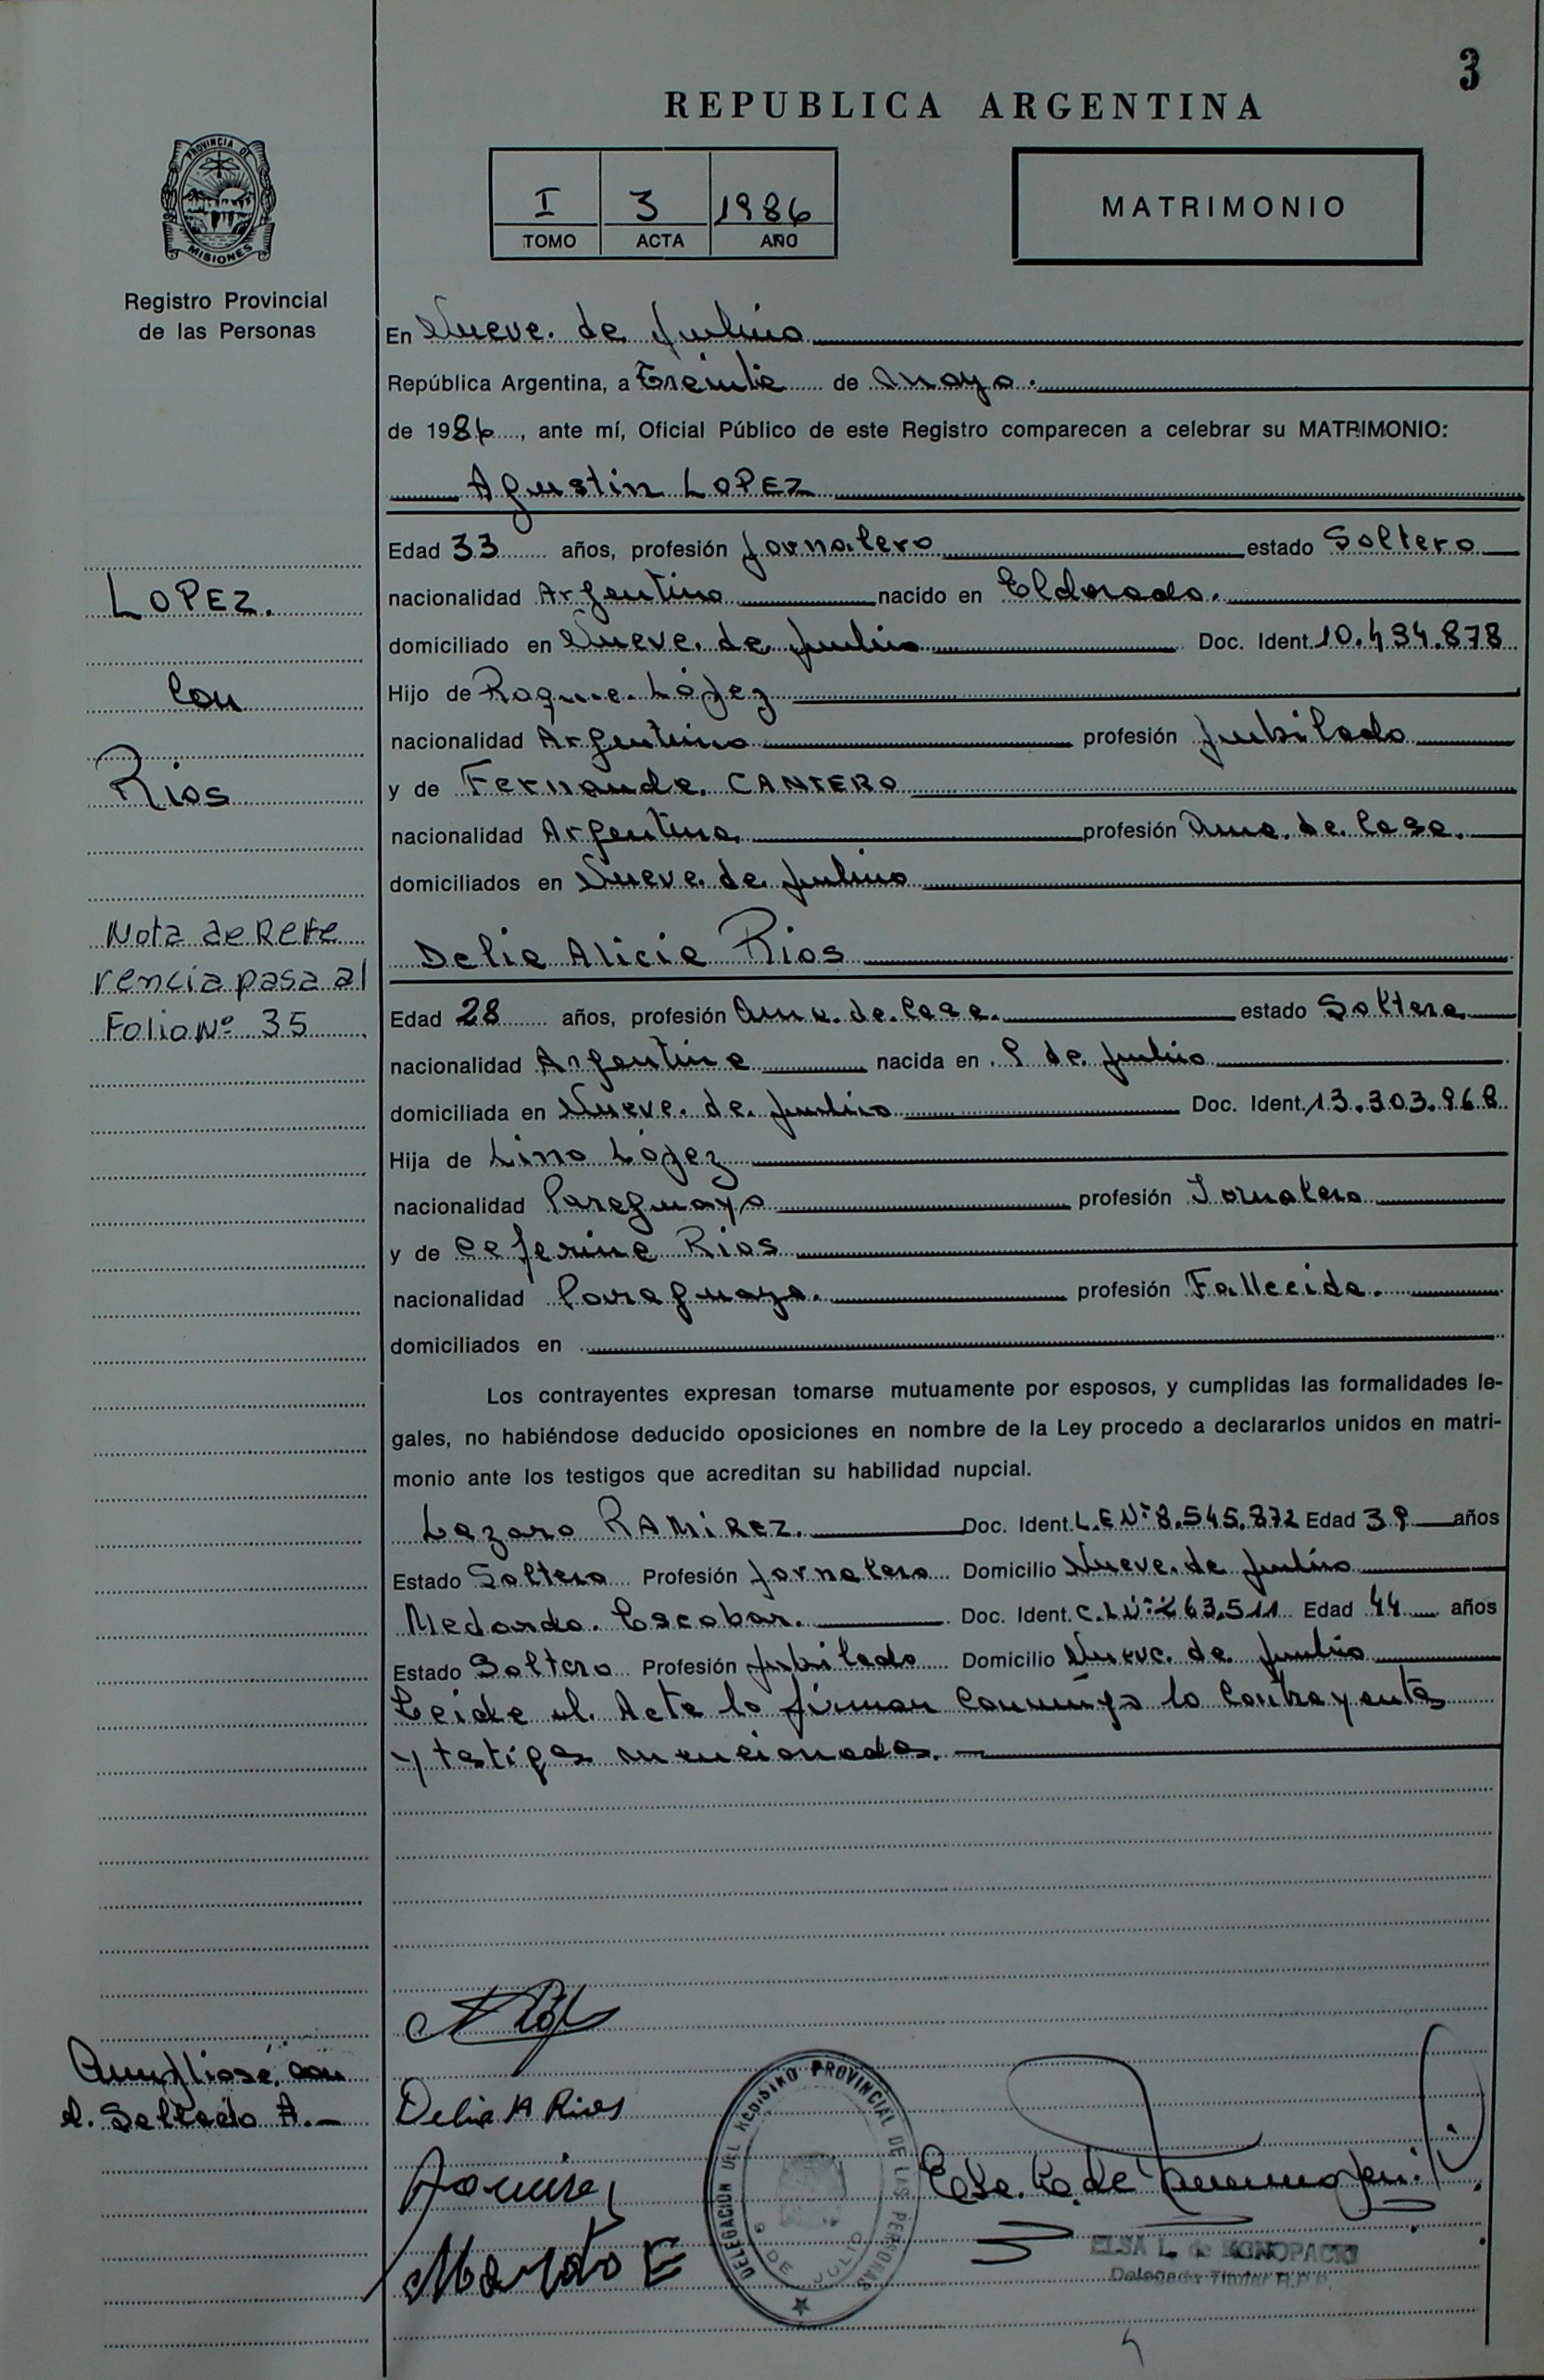 3
REPUBLICA ARGENTINA
PROVINCIA DE
MISIONES
Registro Provincial
de las Personas
I 3 1986
TOMO ACTA AÑO
MATRIMONIO
En Nueve de Julio
República Argentina, a Treinta de Mayo.
de 1986, ante mí, Oficial Público de este Registro comparecen a celebrar su MATRIMONIO:
Agustin LOPEZ
Edad 33 años, profesión Jornalero estado Soltero
nacionalidad Argentino nacido en Eldorado.
domiciliado en Nueve de Julio Doc. Ident. 10.434.878
Hijo de Roque López
nacionalidad Argentino profesión Jubilado
y de Fernanda CANTERO
nacionalidad Argentina profesión Ama de Casa.
domiciliados en Nueve de Julio
LOPEZ.
Con
Rios
Nota de Refe
rencia pasa al
Folio Nº 35
Delia Alicia Rios
Edad 28 años, profesión Ama de Casa. estado Soltera
nacionalidad Argentina nacida en 9 de Julio
domiciliada en Nueve de Julio Doc. Ident. 13.303.968
Hija de Lino López
nacionalidad Paraguayo profesión Jornalero
y de Ceferina Rios
nacionalidad Paraguaya. profesión Fallecida.
domiciliados en
Los contrayentes expresan tomarse mutuamente por esposos, y cumplidas las formalidades le-
gales, no habiéndose deducido oposiciones en nombre de la Ley procedo a declararlos unidos en matri-
monio ante los testigos que acreditan su habilidad nupcial.
Lazaro RAMIREZ. Doc. Ident. L.E Nº 8.545.872 Edad 39 años
Estado Soltero Profesión Jornalero Domicilio Nueve de Julio
Medardo Escobar. Doc. Ident. C.I Nº 263.511 Edad 44 años
Estado Soltero Profesión Jubilado Domicilio Nueve de Julio
Leida el Acta lo firman conmigo lo contrayentes
y testigos mencionados.
Delia A Rios
Ramirez
DELEGACION DEL REGISTRO PROVINCIAL DE LAS PERSONAS
9 DE JULIO
ELSA L. de KONOPACKI
Delegada Titular R.P.P.